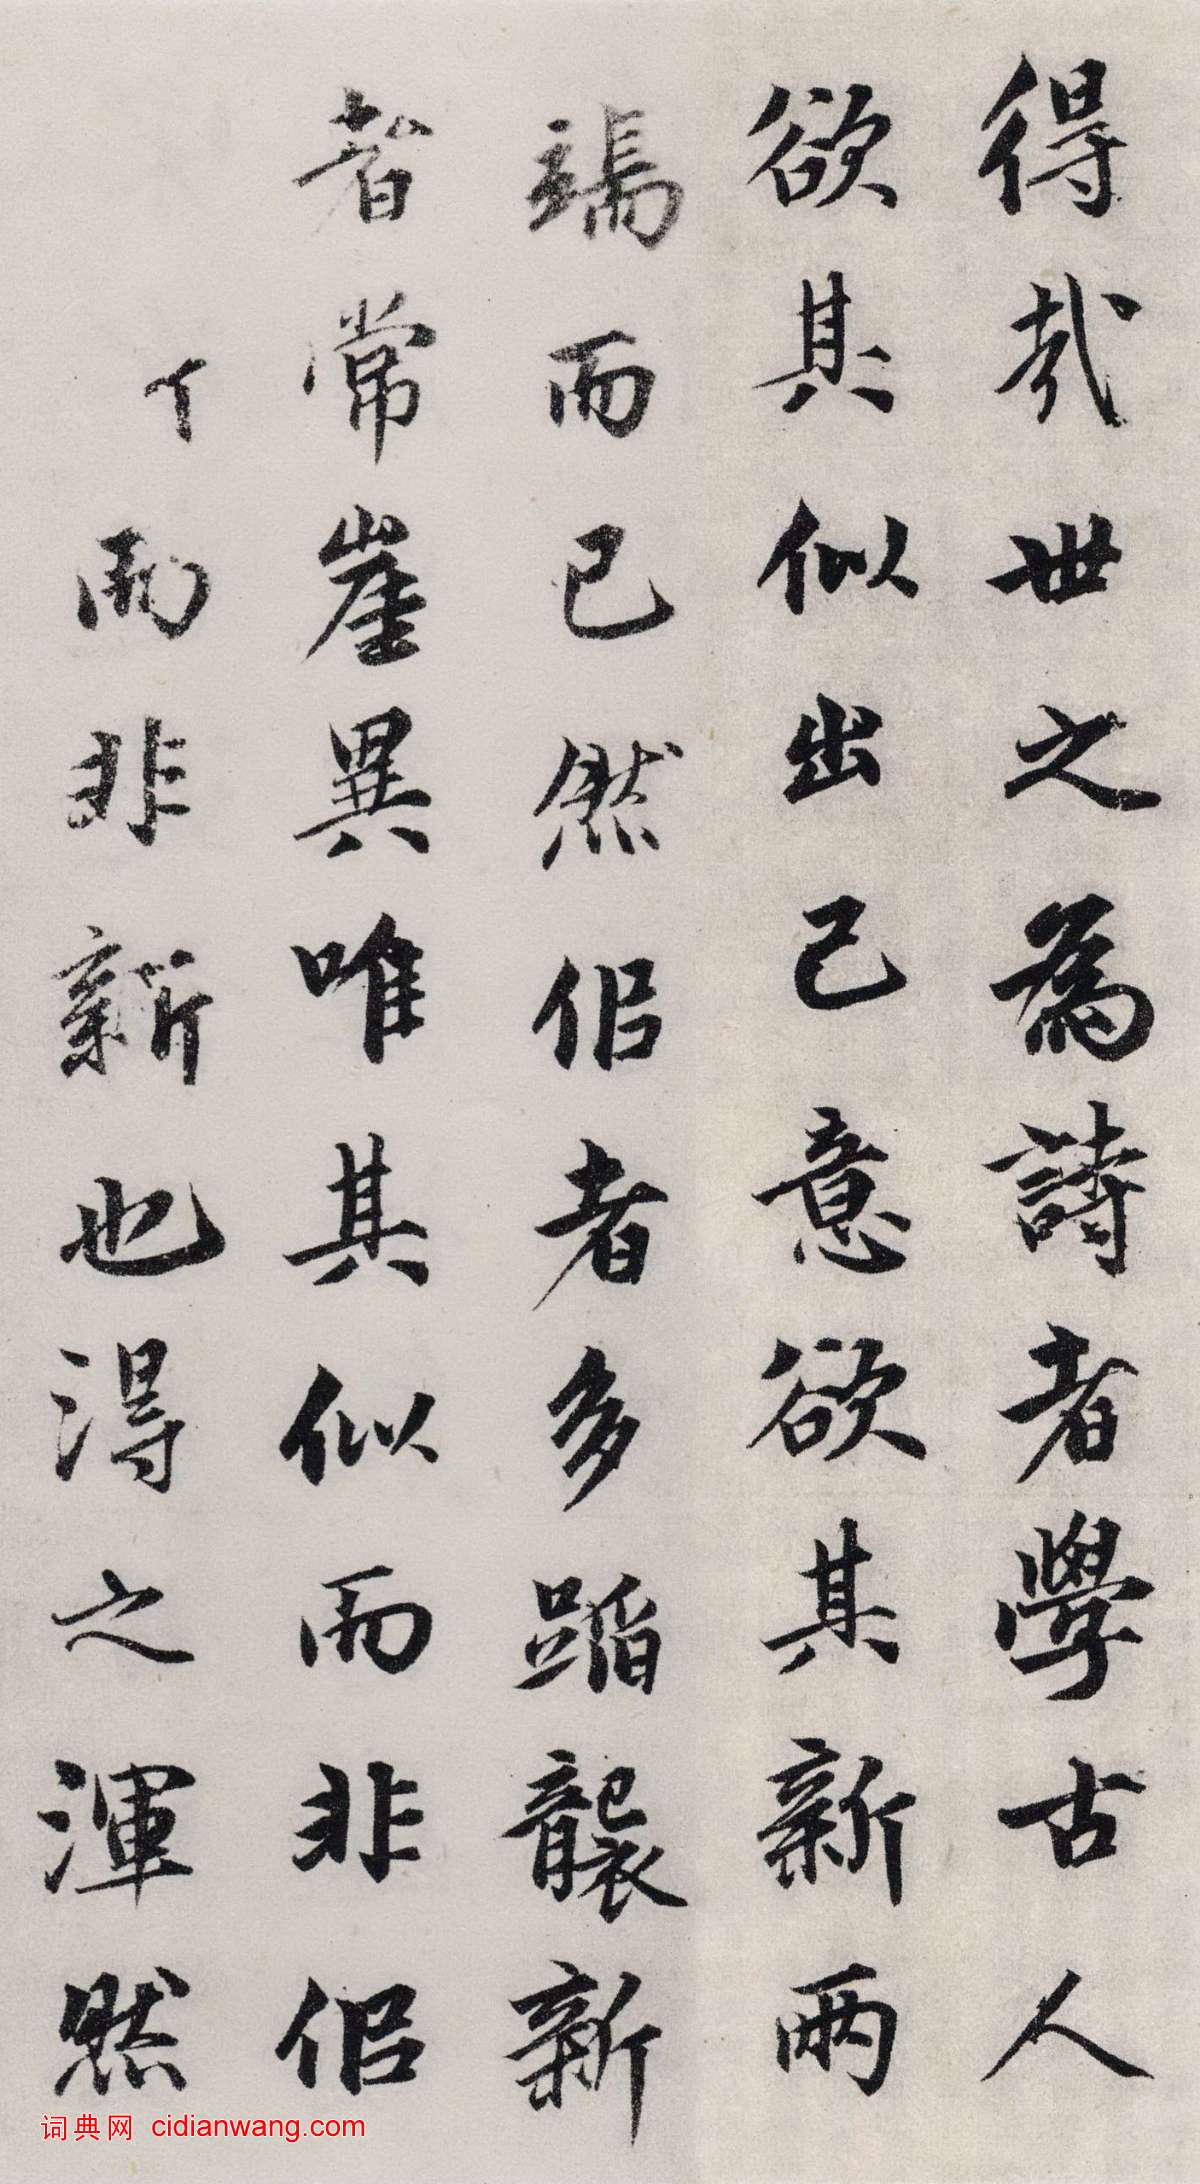 得哉世之為詩者學古人
欲其似出己意欲其新兩
端而已然佀者多蹈襲新
者常崖異唯其似而非佀
而非新也得之渾然
词典网 cidianwang.com